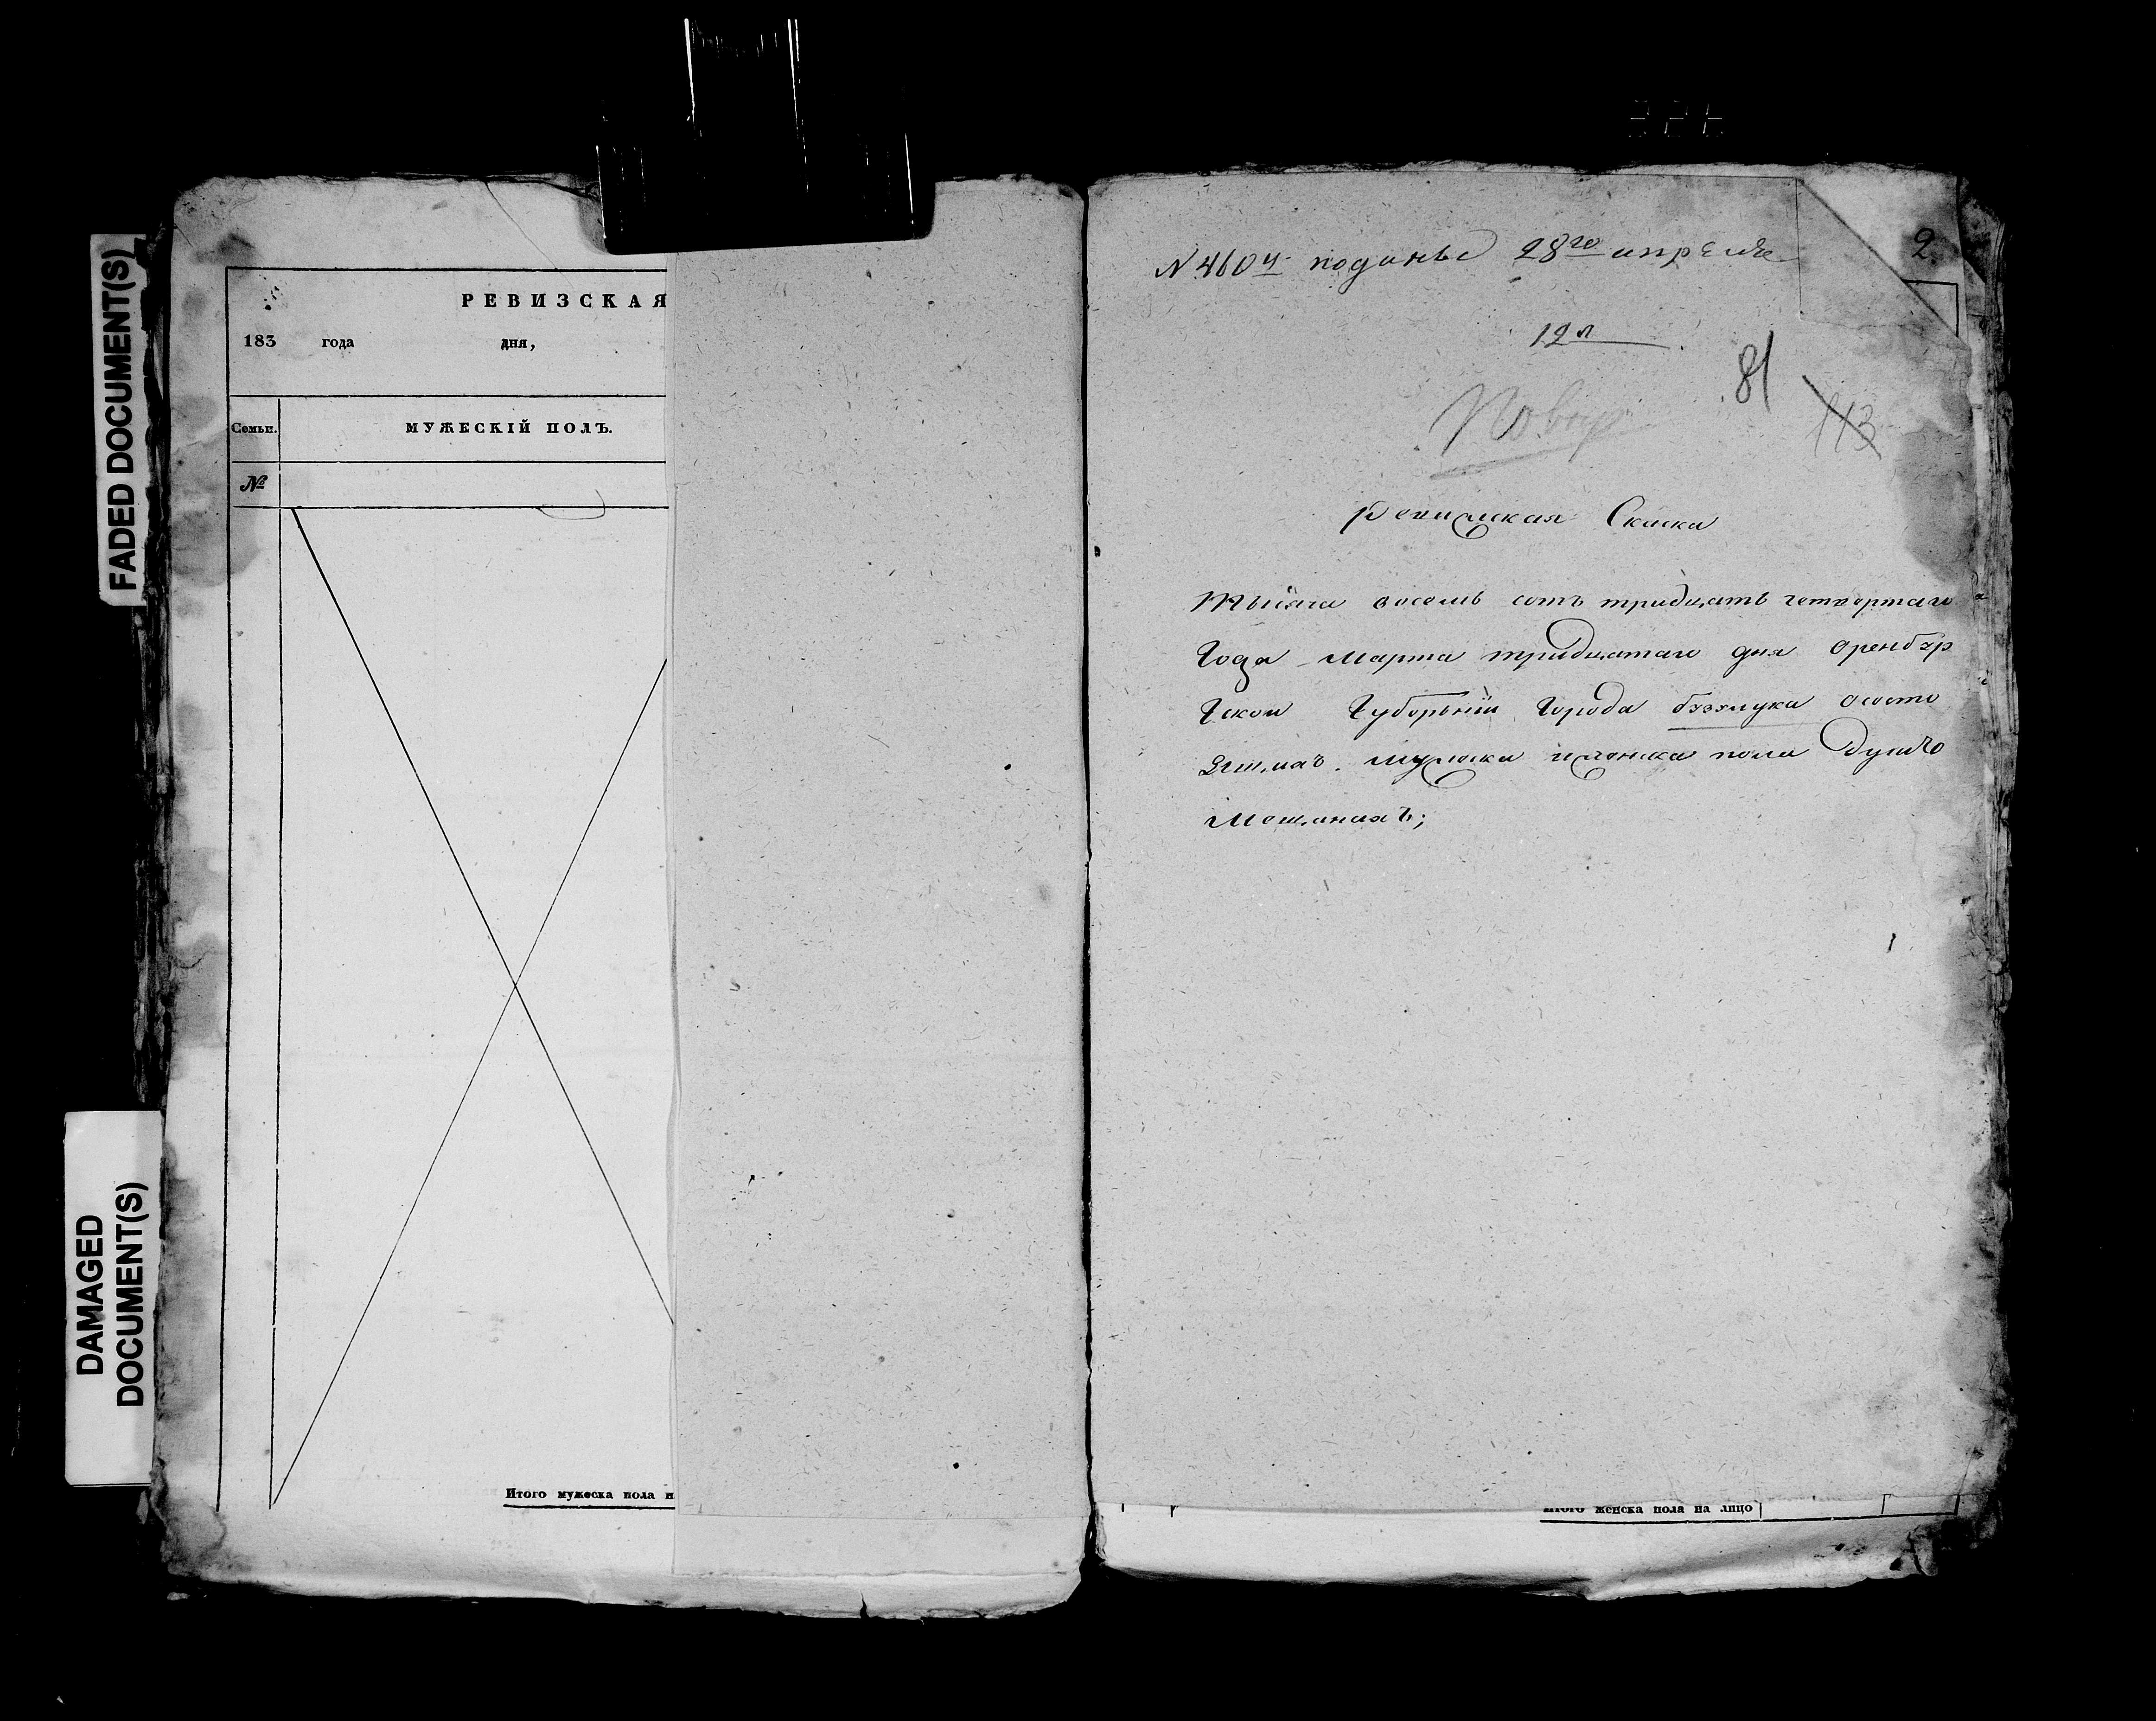 FADED DOCUMENT(S)
DAMAGED
DOCUMENT(S)
РЕВИЗСКАЯ
183 года дня,
Семьи.
МУЖЕСКІЙ ПОЛЪ.
№
Итого мужеска пола н
2
N 4604 поданы 28го апреля
12 л
81
113
Повер
Ревиская Скаска
Тысяча восемь сотъ тридцать четвертаго
Года марта тридцатаго дня Оренбур
Гской Губерьніи Города бузулука ососто
ящихъ мужска и женска пола душъ
Мещанахъ;
Итого женска пола на лицо